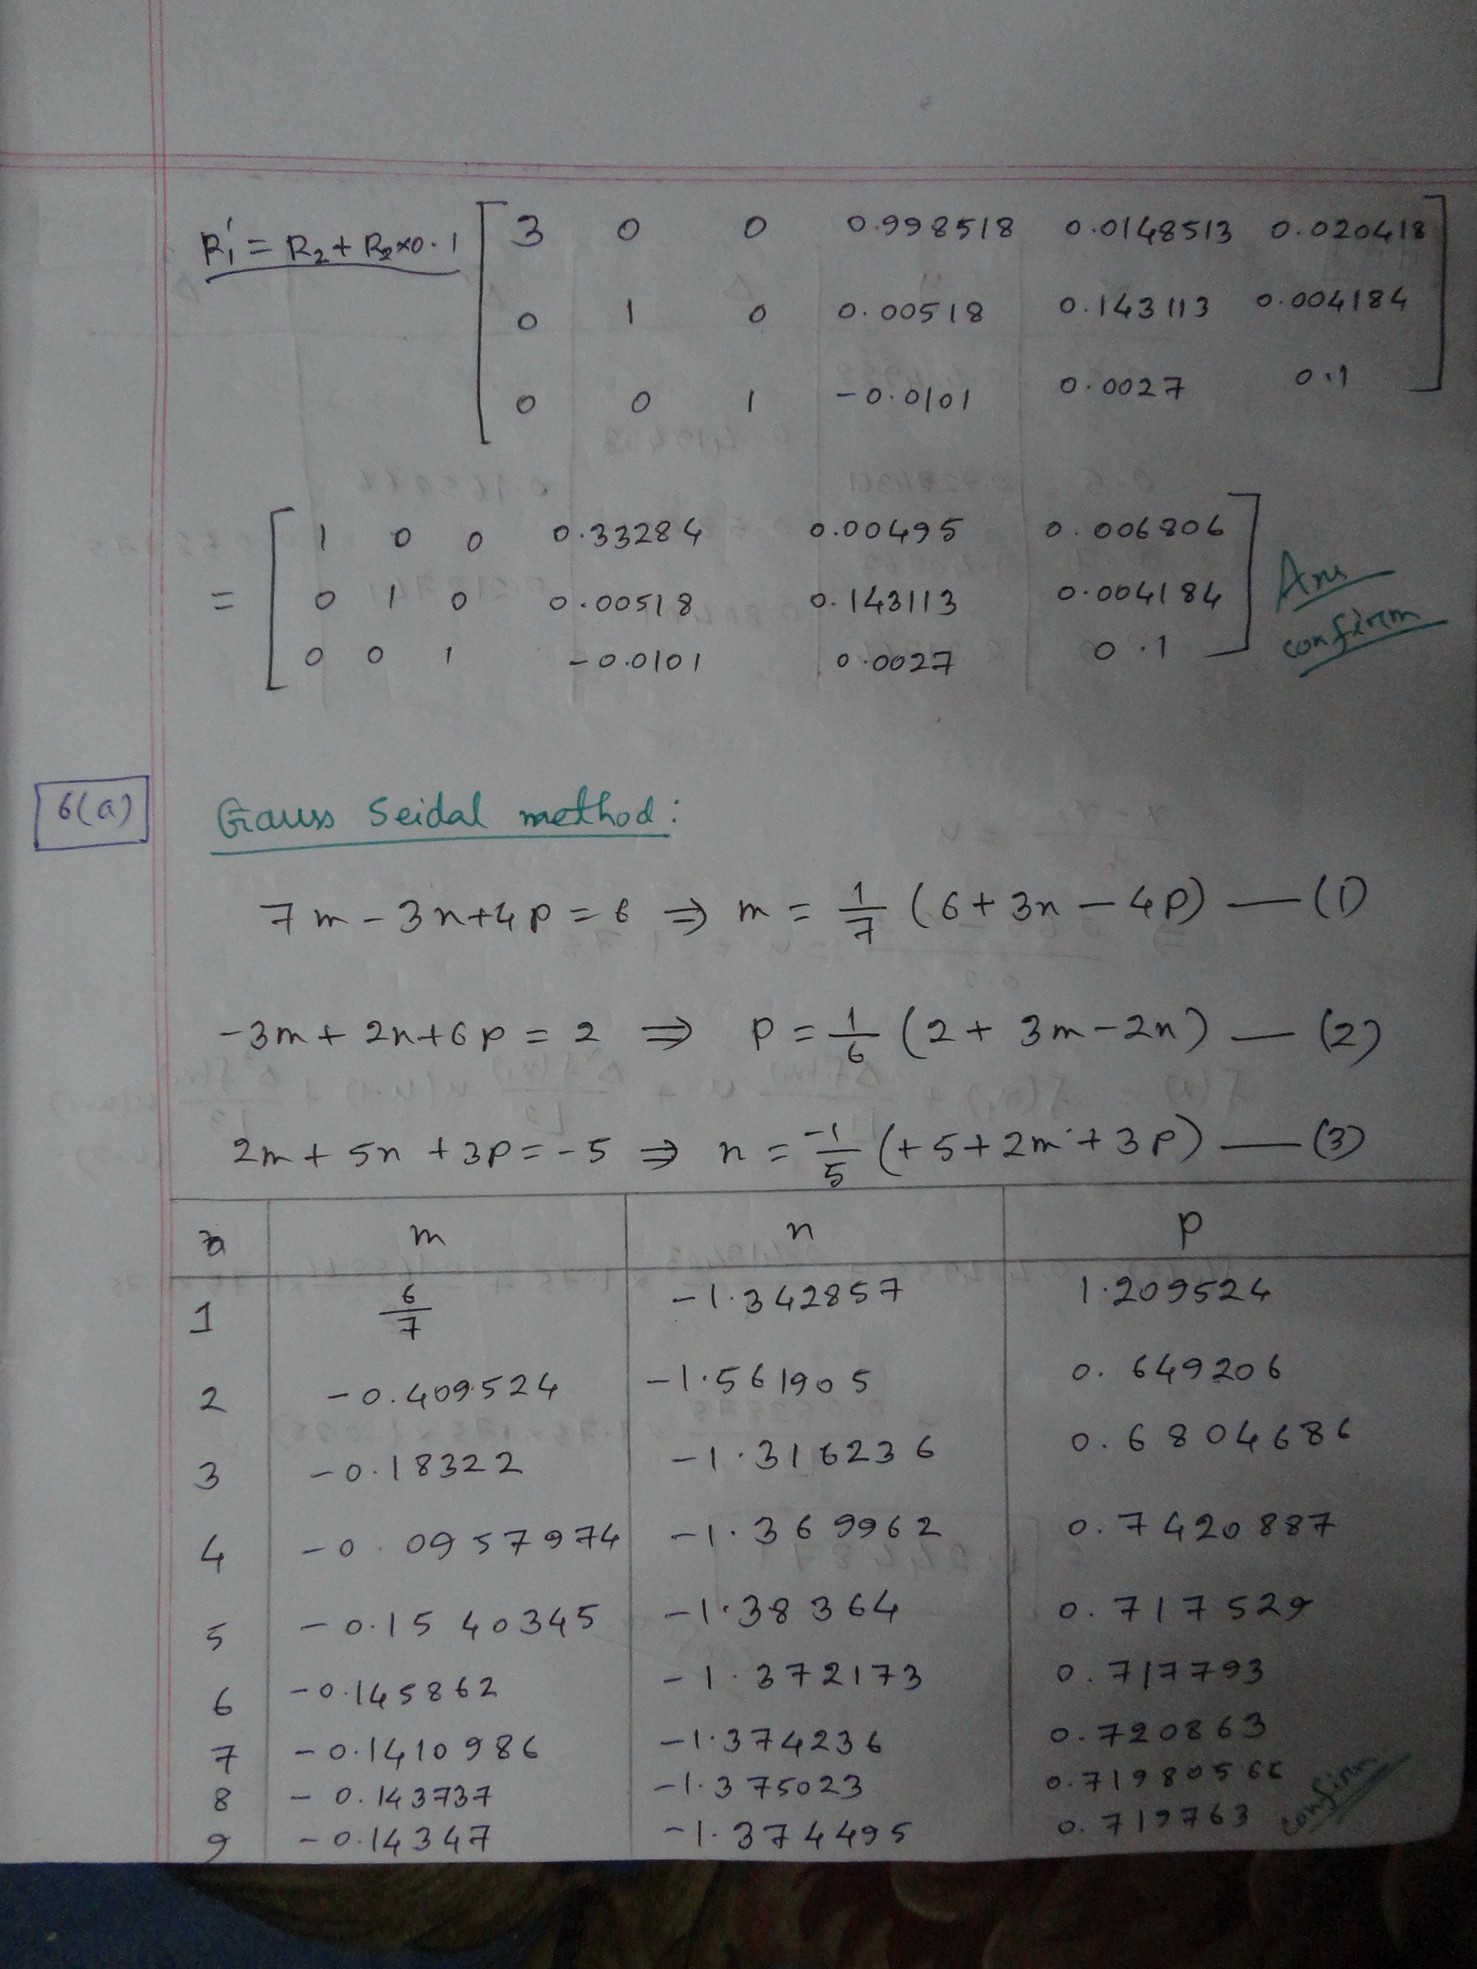 R₁' = R₂ + R₂×0.1 [ 3 0 0 0.998518 0.0148513 0.020418
0 1 0 0.00518 0.143113 0.004184
0 0 1 -0.0101 0.0027 0.1 ]
= [ 1 0 0 0.33284 0.00495 0.006806
0 1 0 0.00518 0.143113 0.004184
0 0 1 -0.0101 0.0027 0.1 ] Ans
confirm
6(a) Gauss Seidal method:
7m - 3n + 4p = 6 ⇒ m = 1/7 (6 + 3n - 4p) — (1)
-3m + 2n + 6p = 2 ⇒ p = 1/6 (2 + 3m - 2n) — (2)
2m + 5n + 3p = -5 ⇒ n = -1/5 (+5 + 2m + 3p) — (3)
m n p
1 6/7 -1.342857 1.209524
2 -0.409524 -1.561905 0.649206
3 -0.18322 -1.316236 0.6804686
4 -0.0957974 -1.369962 0.7420887
5 -0.1540345 -1.38364 0.717529
6 -0.145862 -1.372173 0.717793
7 -0.1410986 -1.374236 0.720863
8 -0.143737 -1.375023 0.7198056
9 -0.14347 -1.374495 0.719763 confirm